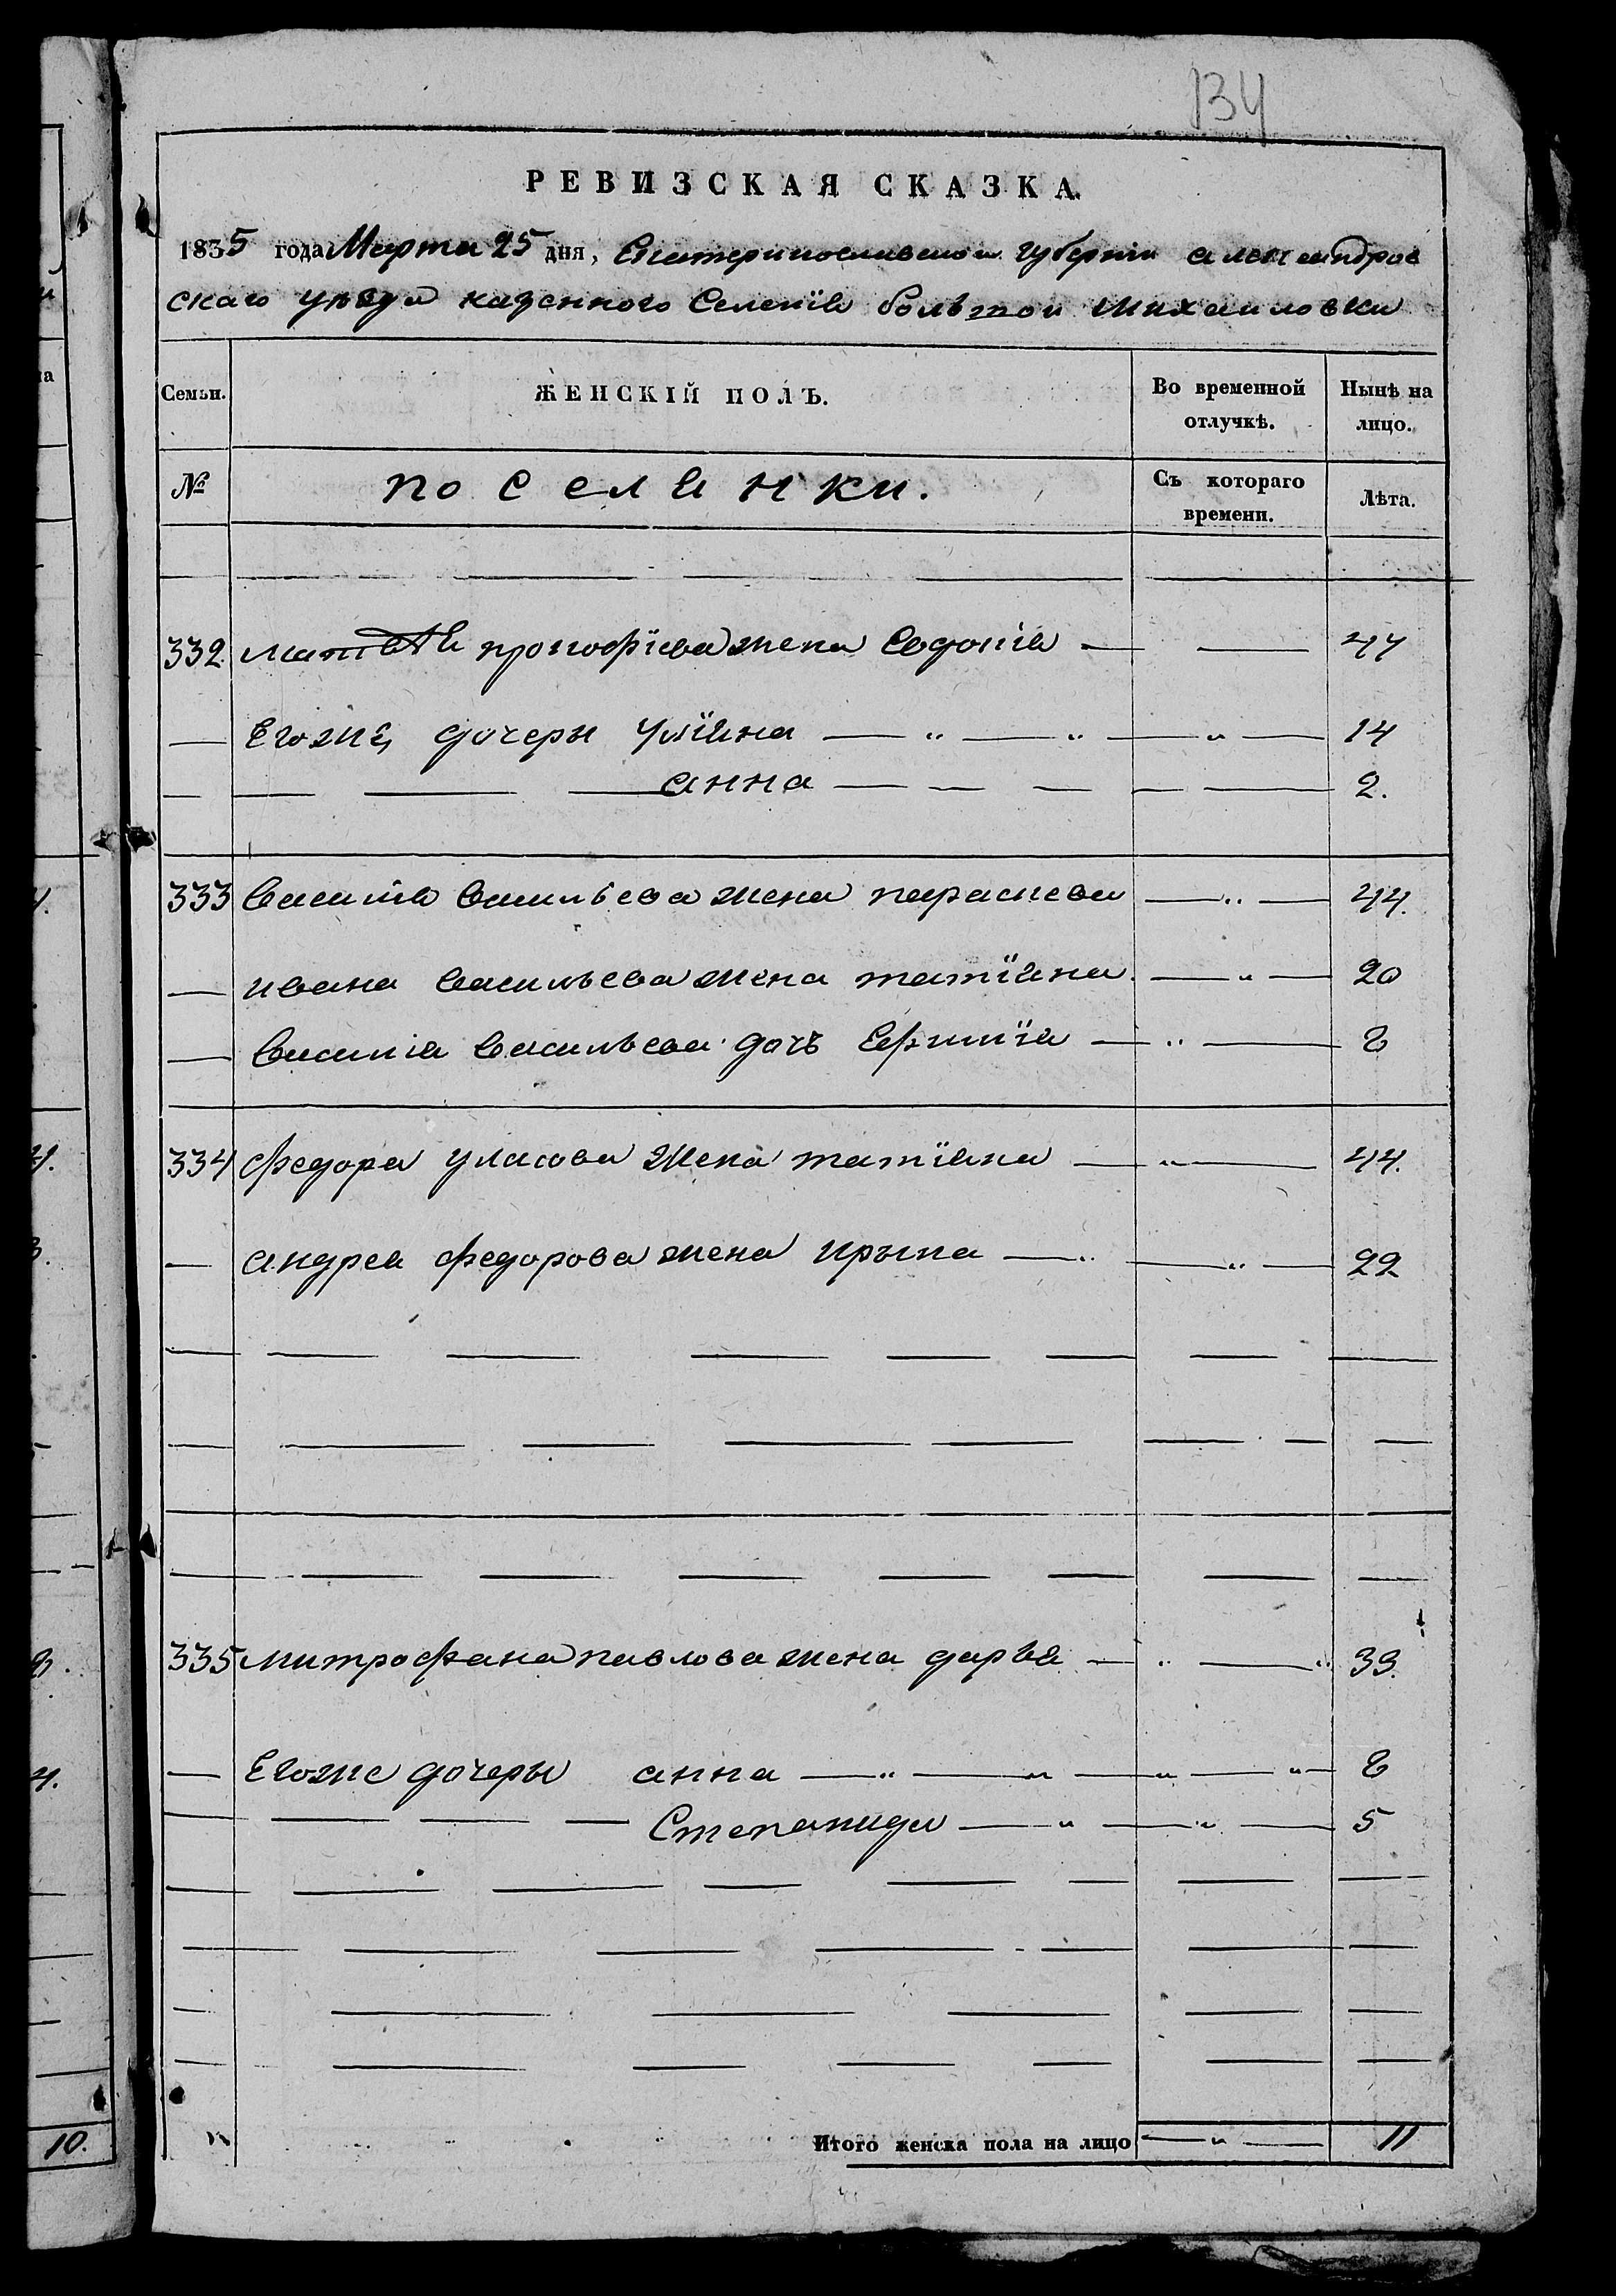 134
РЕВИЗСКАЯ СКАЗКА.
1835 года Марта 25 дня, Екатеринославской губернiи александров
скаго уезда казенного Селенiя большой михаиловки
Семьи. ЖЕНСКIЙ ПОЛЪ. Во временной отлучкѣ. Нынѣ на лицо.
№ поселянки. Съ котораго времени. Лѣта.
332. матвѣя прокофiева жена Евдокiя 44
Егоже дочеры улiяна 14
анна 2.
333 Василiя Васильева жена параскева 44.
ивана Васильева жена татiяна 20
Василiя Васильева дочъ 8
334 федора уласова жена татiяна 44.
андрея федорова жена ирына 22
335 митрофана павлова жена дарья 39.
Егоже дочеры анна 8
Степанида 5
Итого женска пола на лицо 11
4.
4.
3.
4.
10.